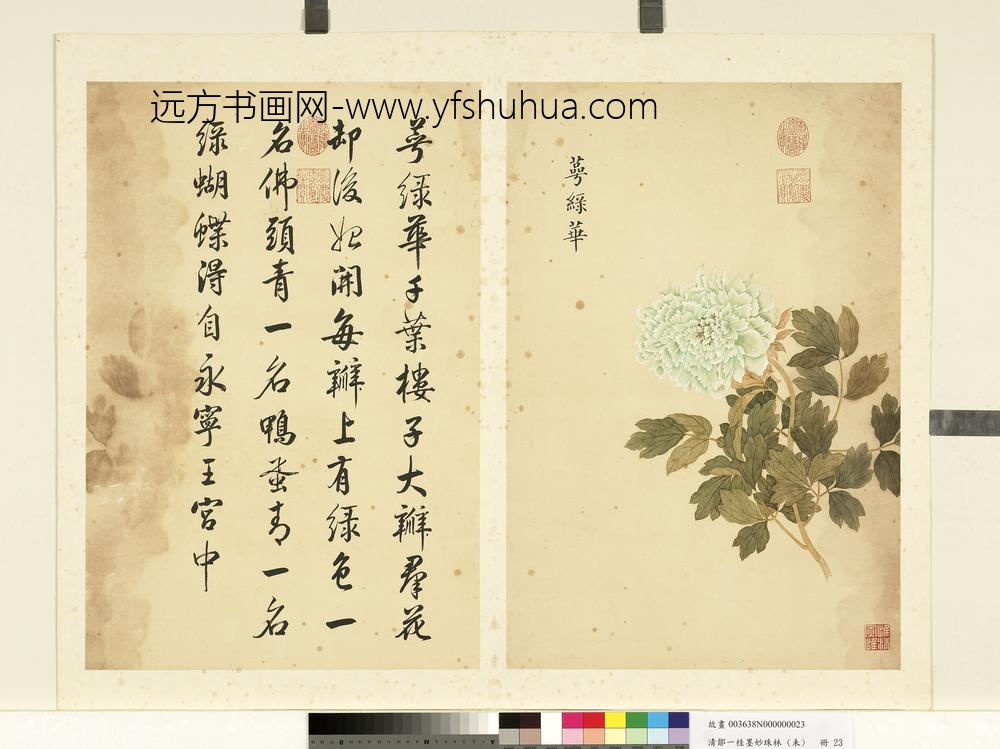 远方书画网-www.yfshuhua.com
萼綠華
萼綠華千葉樓子大瓣羣花
卸後始開每瓣上有綠色一
名佛頭青一名鴨蛋青一名
綠蝴蝶得自永寧王宮中
故畫 003638N000000023
清鄒一桂墨妙珠林（未） 冊 23